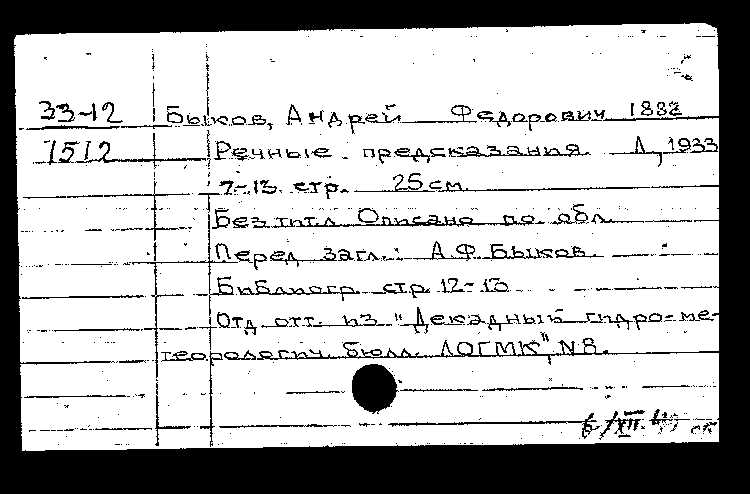 33-12 Быков, Андрей Федорович 1882
1512 Речные предсказания. Л, 1933
7-13 стр. 25 см.
Без тит. л Описано по обл.
Перед загл.: А.Ф. Быков.
Библиогр. стр. 12-13
Отд. отт. из "Декадный гидро-ме-
теорологич. бюлл. ЛОГМК", N8.
6/XII. ск